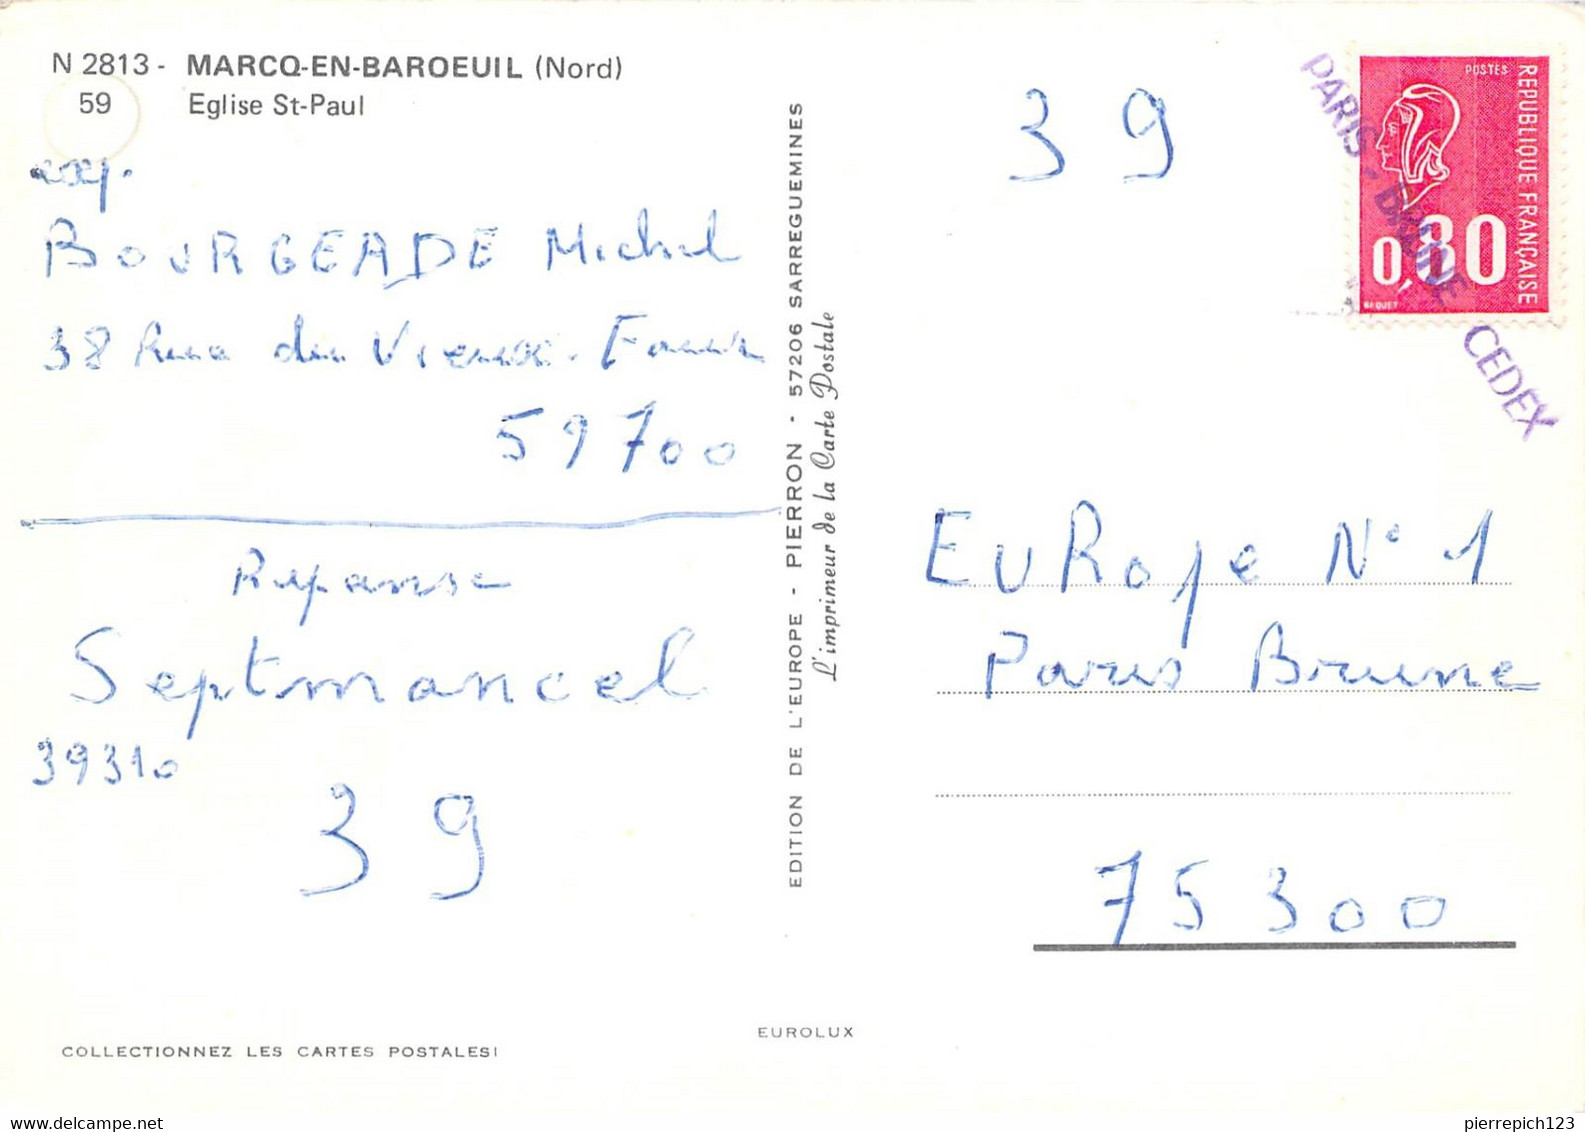 N 2813 - MARCQ-EN-BAROEUIL (Nord)
59 Eglise St-Paul
exp.
BOURGEADE Michel
38 Rue du Vieux
59700
Reponse
Septmoncel
39310
39
COLLECTIONNEZ LES CARTES POSTALES!
EDITION DE L'EUROPE - PIERRON - 57206 SARREGUEMINES
L'imprimeur de la Carte Postale
EUROLUX
39
POSTES
REPUBLIQUE FRANÇAISE
0,80
BEQUET
PARIS - BRUNE CEDEX
EuRope N° 1
Paris Brune
75300
pierrepich123